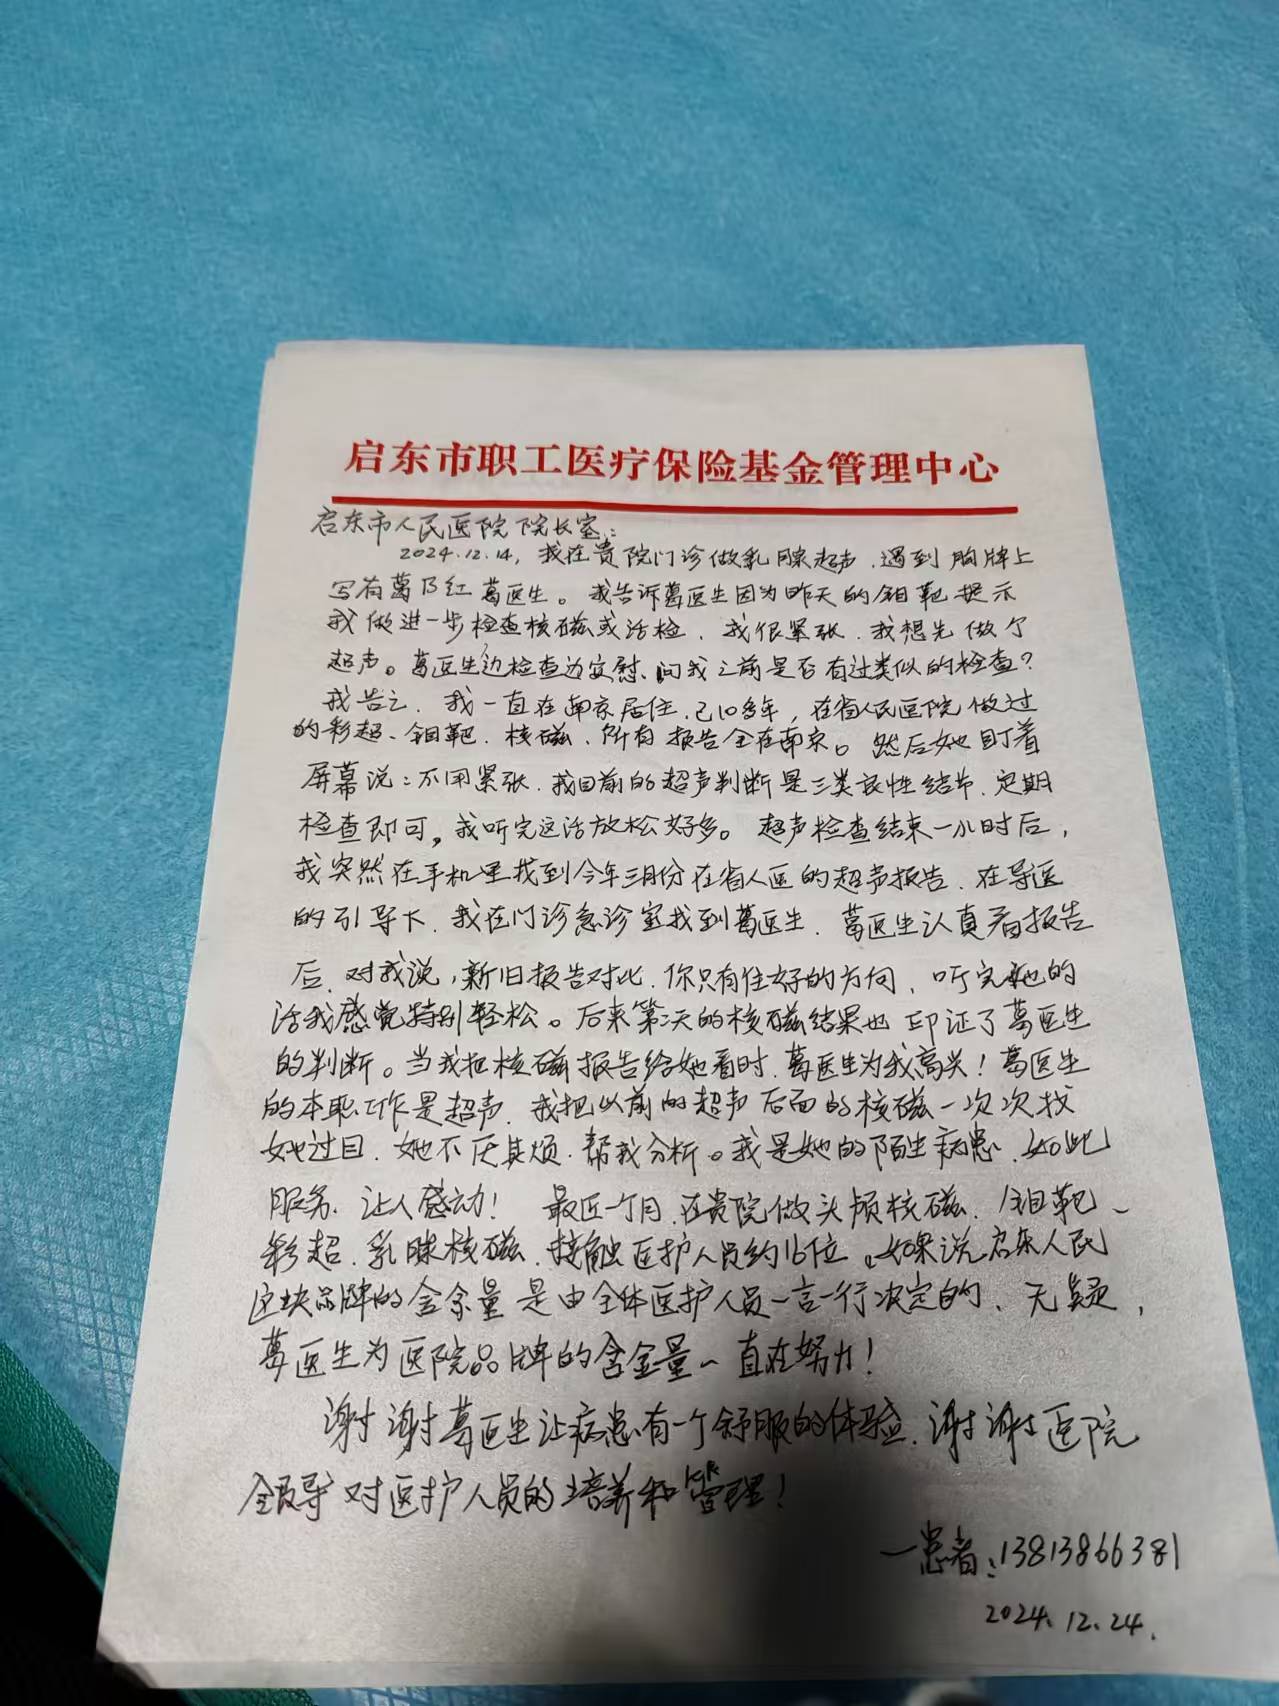 启东市职工医疗保险基金管理中心
启东市人民医院院长室：
2024.12.14，我在贵院门诊做乳腺超声，遇到胸牌上
写有葛乃红葛医生。我告诉葛医生因为昨天的钼靶提示
我做进一步检查核磁或活检，我很紧张，我想先做个
超声。葛医生边检查边安慰、问我之前是否有过类似的检查？
我告之，我一直在南京居住，已10多年，在省人民医院做过
的彩超、钼靶、核磁，所有报告全在南京。然后她盯着
屏幕说：不用紧张，我目前的超声判断是三类良性结节，定期
检查即可，我听完这话放松好多。超声检查结束一小时后，
我突然在手机里找到今年三月份在省人医的超声报告，在导医
的引导下，我在门诊急诊室找到葛医生，葛医生认真看报告
后，对我说，新旧报告对比，你只有往好的方向，听完她的
话我感觉特别轻松。后来第二天的核磁结果也印证了葛医生
的判断。当我把核磁报告给她看时，葛医生为我高兴！葛医生
的本职工作是超声，我把以前的超声后面的核磁一次次找
她过目，她不厌其烦，帮我分析。我是她的陌生病患，如此
服务，让人感动！ 最近一个月，在贵院做头颅核磁、钼靶、
彩超、乳腺核磁，接触医护人员约16位，如果说启东人民
这块品牌的含金量是由全体医护人员一言一行决定的，无疑，
葛医生为医院品牌的含金量一直在努力！
谢谢葛医生让病患有一个舒服的体验，谢谢医院
领导对医护人员的培养和管理！
一患者：13813866381
2024.12.24.